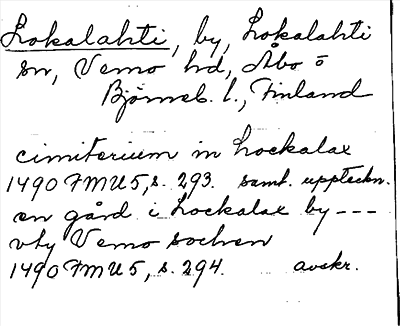 Lokalahti, by, Lokalahti
sn, Vemo hd, Åbo o
Björneb. l., Finland
cimiterium in Lockalax
1490 FMU5, s. 293. samt. uppteckn.
en gård i Lockalax by ---
vty Vemo sochen
1490 FMU5, s. 294. avskr.